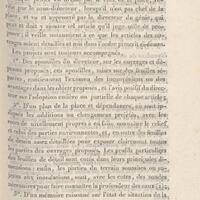 par le sous-directeur, lorsqu'il n'est pas chef de la
place, et vu et approuvé par le directeur du génie, qui
et doit y ajouter tel article qu'il juge utile de pro-
poser, il veille notamment à ce que les articles des ou-
vrages soient détaillés et mis dans l'ordre prescrit ci-dessus.
toujours accompagnés.
1°. Des apostilles du directeur, sur les ouvrages et dé-
penses proposés; ces apostilles, mises sur des feuilles sé-
parées, contiennent l'examen des inconvéniens ou avan-
tages dans les objets proposés, et l'avis positif du direc-
teur sur l'adoption entière ou partielle de chaque article;
2°. D'un plan de la place et dépendances, où sont in-
diqués les additions ou changemens projetés, avec les
de nivellement propres à en faire connaître le relief,
et celui des parties environnantes, et, en outre, des feuilles
de dessin assez détaillées pour exposer clairement toutes
les parties des ouvrages proposés. Les profils particuliers
des feuilles de détail sont cotés dans leurs principales di-
mensions; enfin, les parties du terrain soumises ou su-
jettes aux inondations, sont, avec les cotes, des sondes
nécessaires pour faire connaître la profondeur des eaux;
3°. D'un mémoire raisonné sur l'état de situation de la